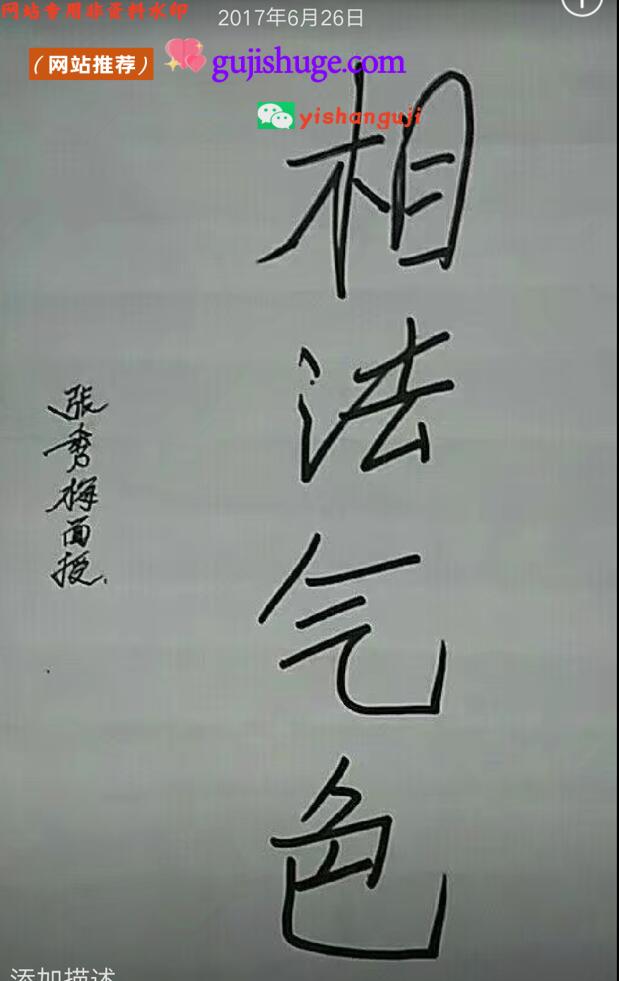 网站专用非资料水印
2017年6月26日
（网站推荐）
gujishuge.com
yishanguji
相法气色
张秀梅面授.
添加描述